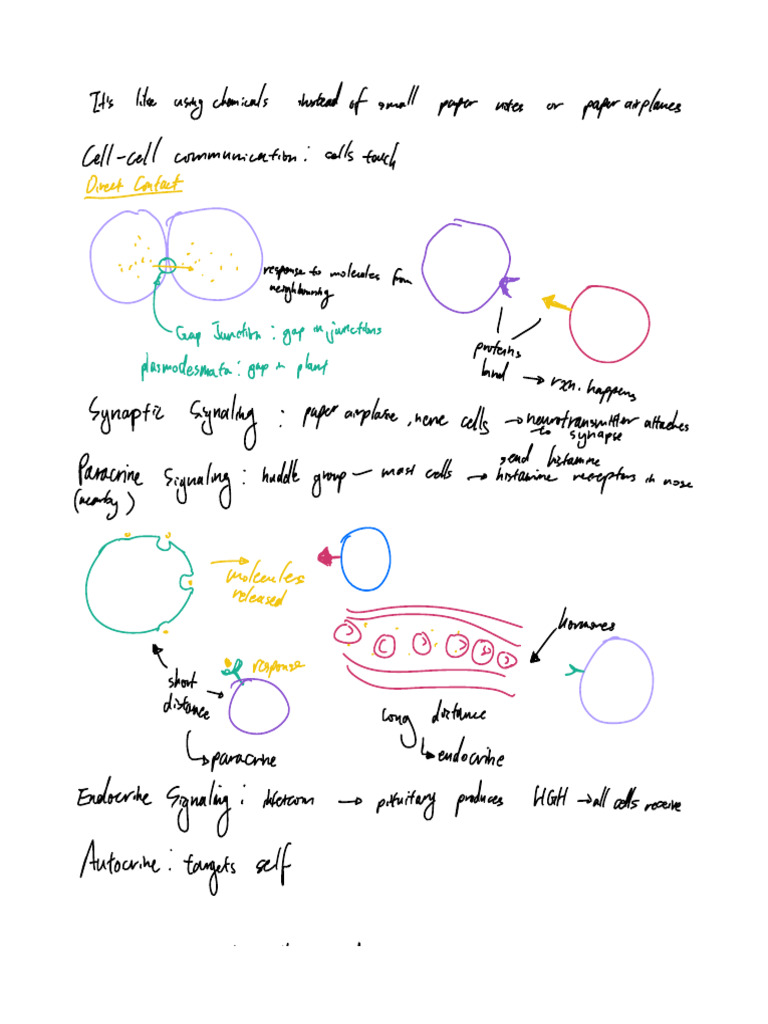 It's like using chemicals instead of small paper notes or paper airplanes
Cell-cell communication: cells touch
Direct Contact
response to molecules from
neighbouring
Gap Junction: gap in junctions
plasmodesmata: gap in plant
proteins
bind → rxn. happens
Synaptic Signaling: paper airplane, nerve cells → neurotransmitter attaches
to synapse
send histamine
Paracrine Signaling: huddle group — mast cells → histamine receptors in nose
(nearby)
molecules
released
hormones
response
short
distance
↳ paracrine
long distance
↳ endocrine
Endocrine Signaling: intercom → pituitary produces HGH → all cells receive
Autocrine: targets self